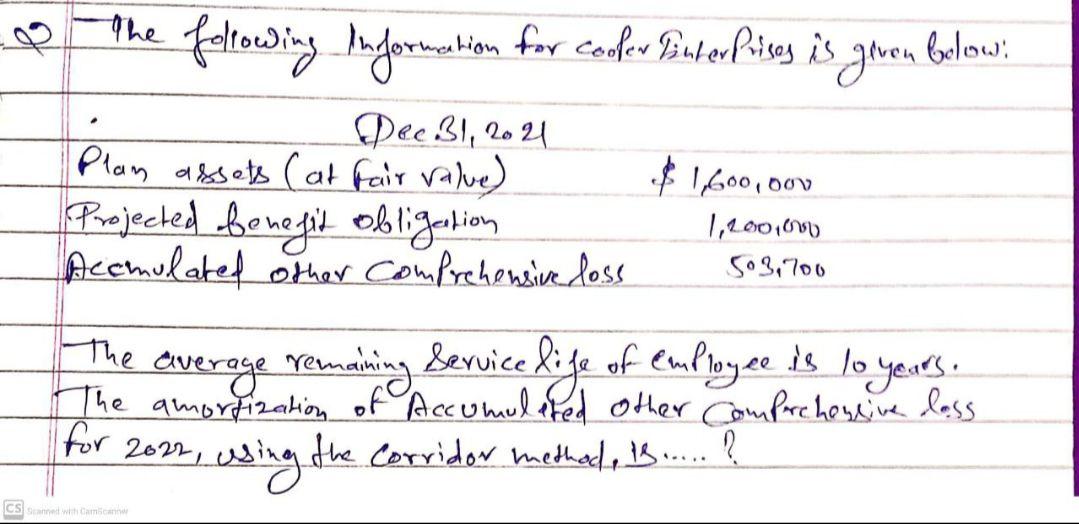 Q The following Information for Cooper Enterprises is given below:
Dec 31, 2021
Plan assets (at fair value) $ 1,600,000
Projected benefit obligation 1,200,000
Accmulated other Comprehensive loss 503,700
The average remaining Service life of employee is 10 years.
The amortization of Accumulated Other Comprehensive loss
for 2022, using the Corridor method, is.....?
CS Scanned with CamScanner